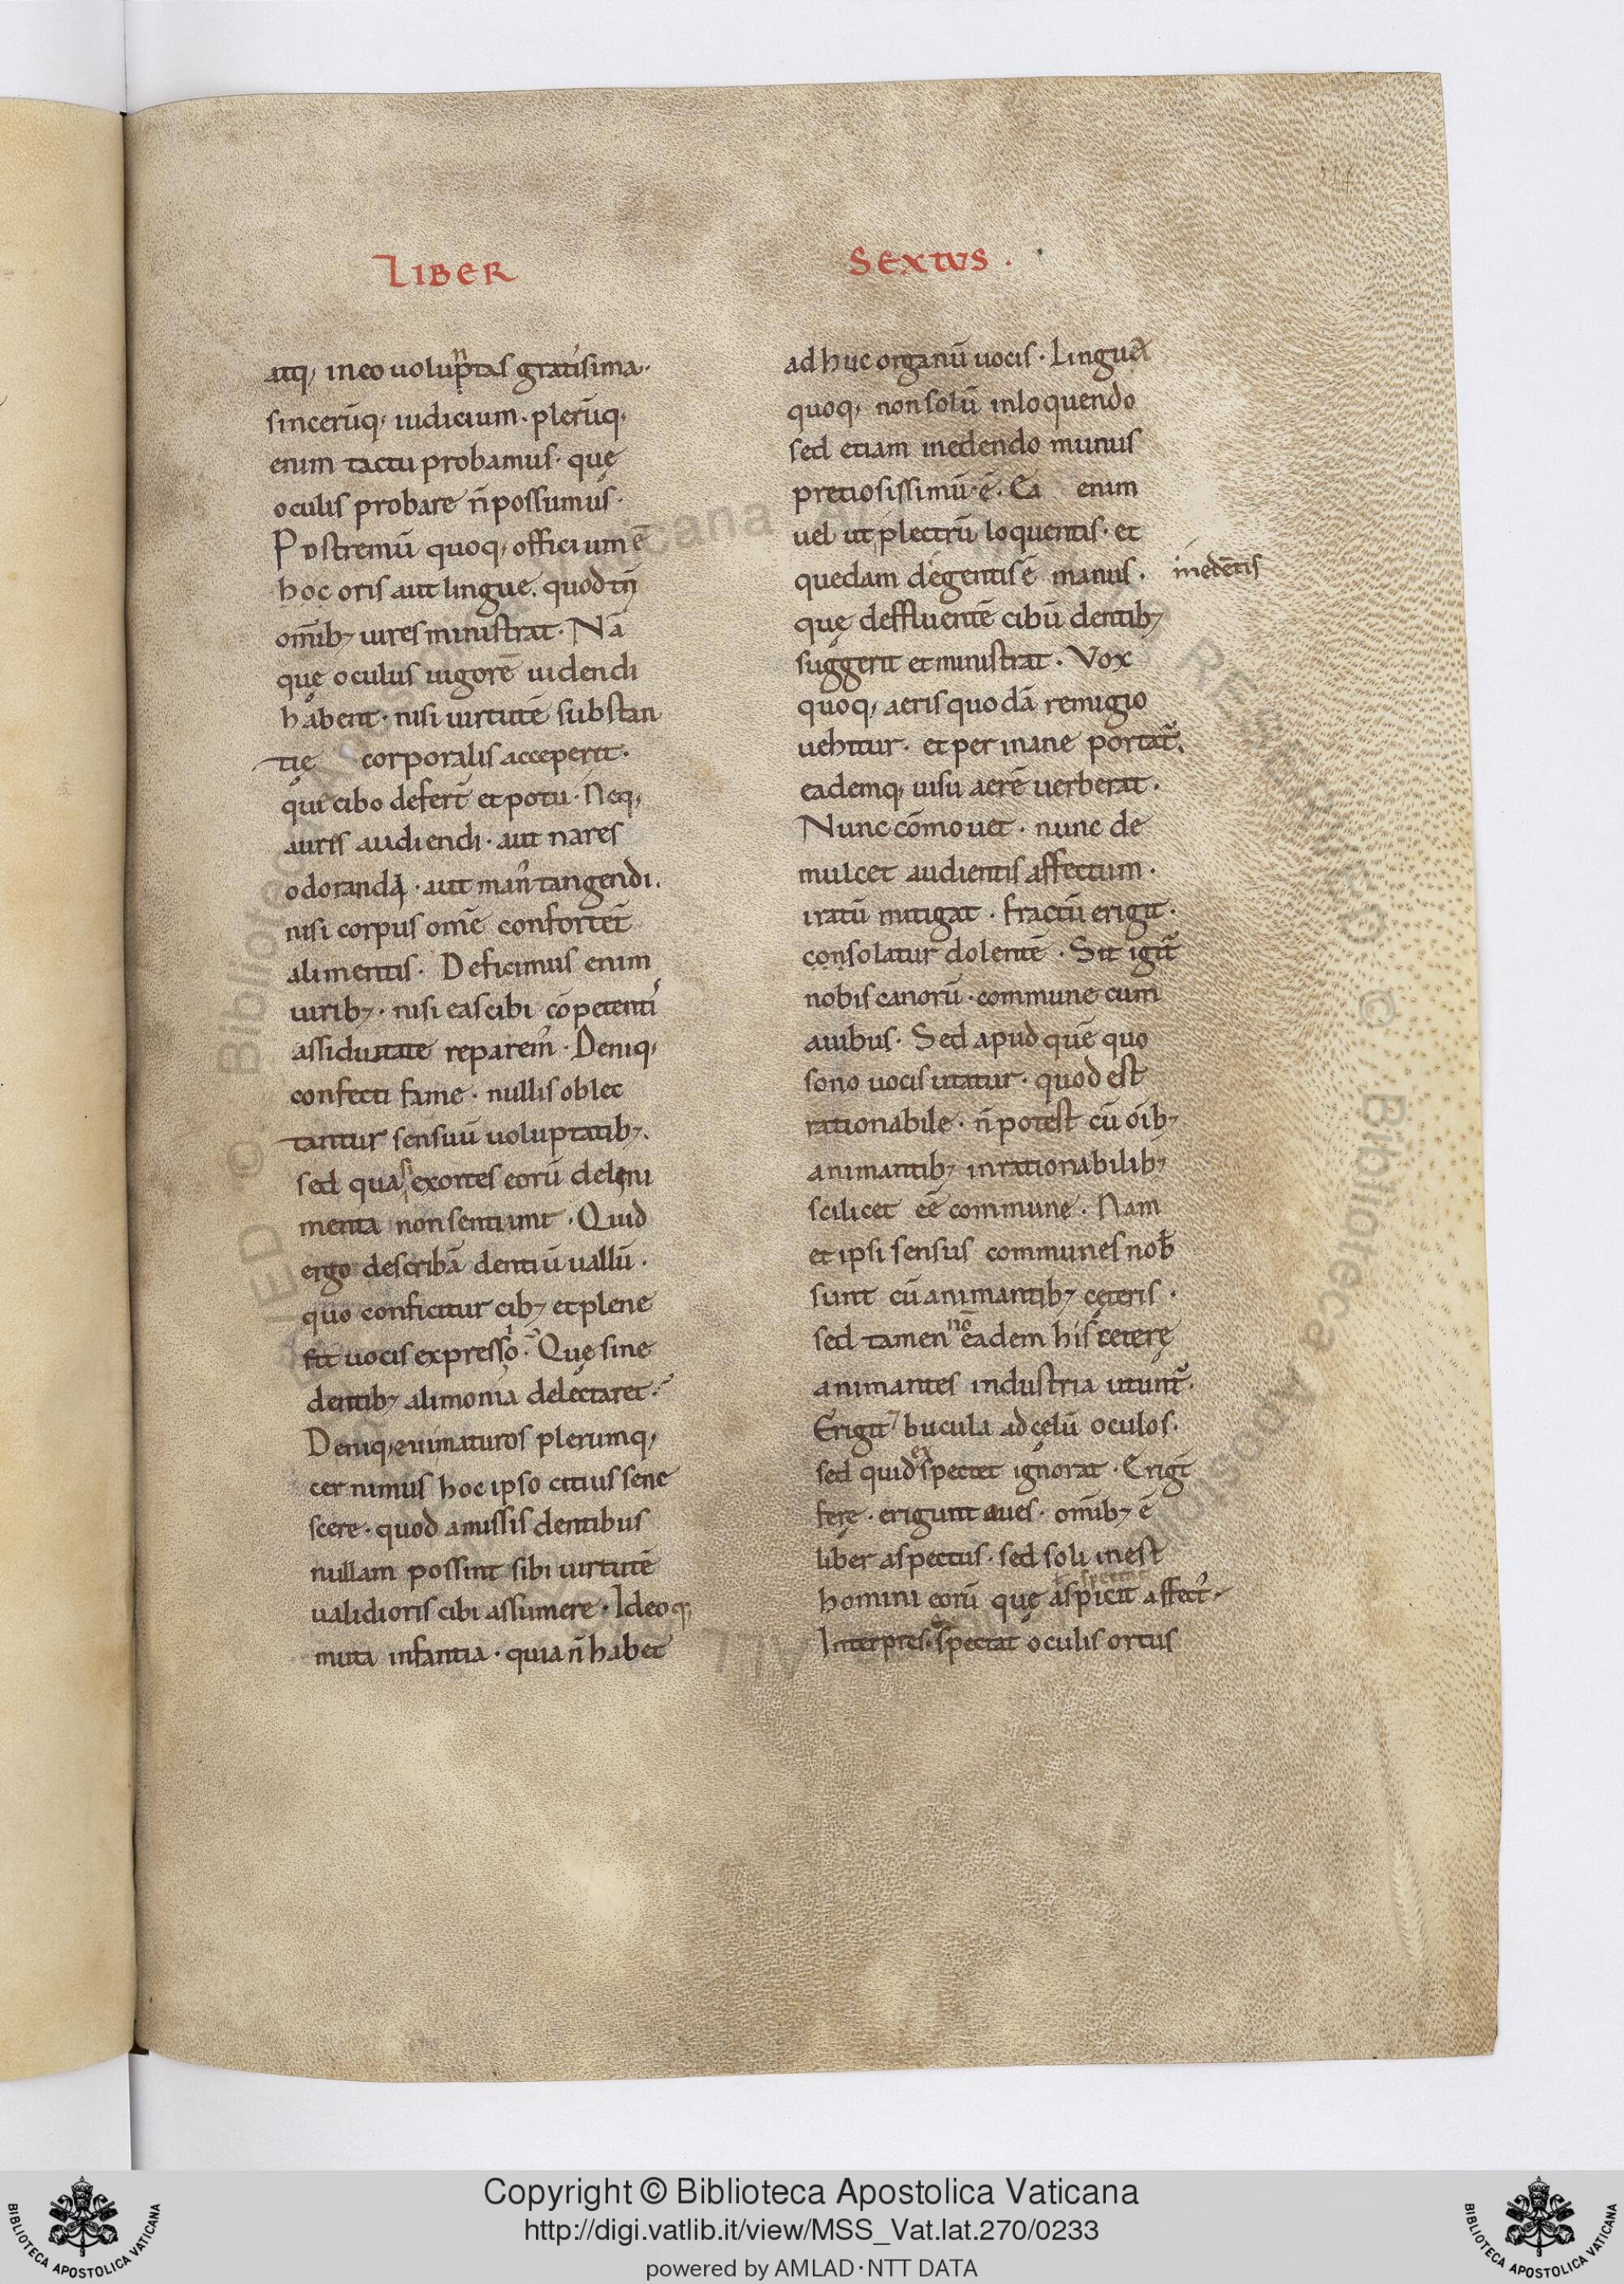 LIBER
atq, in eo uoluptas gratisima.
sincerūq, iudicium. plerūq,
enim tactu probamus. quę
oculis probare n̄ possumus.
Postremū quoq, officium ē
hoc oris aut linguę. quod tn̄
omīb; uires ministrat. Nā
quę oculus uigorē uidendi
habent. nisi uirtutē substan
tię corporalis acceperit.
qui cibo defert̄ et potu. Neq,
aures audiendi. aut nares
odorandi. aut man᾿ tangendi.
nisi corpus omē confortet̄
alimentis. Deficimus enim
uirib;. nisi eas cibi cōpetenti
assiduitate reparem᾿. Deniq,
confecti fame. nullis oblec
tantur sensuū uoluptatib;.
sed quasi exortes eorū deleni
menta non sentiunt. Quid
ergo describā dentiū uallū.
quo conficitur cib; et plene
fit uocis expressio. Quę sine
dentib; alimonia delectaret.
Deniq, euimaturos plerumq,
cernimus hoc ipso citius sene
scere. quod amissis dentibus
nullam possint sibi uirtutē
ualidioris cibi assumere. Ideoq;
muta infantia. quia n̄ habet
SEXTVS.
adhuc organū uocis. Linguę
quoq, non solū in loquendo
sed etiam inedendo munus
pretiosissimū ē. Ea enim
uel ut plectrū loquentis. et
quedam degentis ē manus. inedētis
quę deffluentē cibū dentib;
suggerit et ministrat. Vox
quoq, aeris quodā remigio
uehitur. et per inane portat᾿.
eademq, uisu aerē uerberat.
Nunc cōmouet. nunc de
mulcet audientis affectum.
iratū mitigat. fractū erigit.
consolatur dolentē. Sit igit᾿
nobis canorū. commune cum
auibus. Sed apud quē quo
sono uocis utatur. quod est
rationabile. n̄ potest cū oīb;
animantib; inrationabilib;
scilicet eē commune. Nam
et ipsi sensus communes nob̄
sunt cū animantib; cęteris.
sed tamen nō eadem his ceterę
animantes industria utunt᾿.
Erigit bucula ad cęlū oculos.
sed quid exspectet ignorat. Erigt̄
fere. erigunt aues. omīb; ē
liber aspectus. sed soli inest
homini eorū quę aspicit affect᾿.
Interpres. spectat oculis ortus
Copyright © Biblioteca Apostolica Vaticana
http://digi.vatlib.it/view/MSS_Vat.lat.270/0233
powered by AMLAD·NTT DATA
BIBLIOTECA APOSTOLICA VATICANA
BIBLIOTECA APOSTOLICA VATICANA